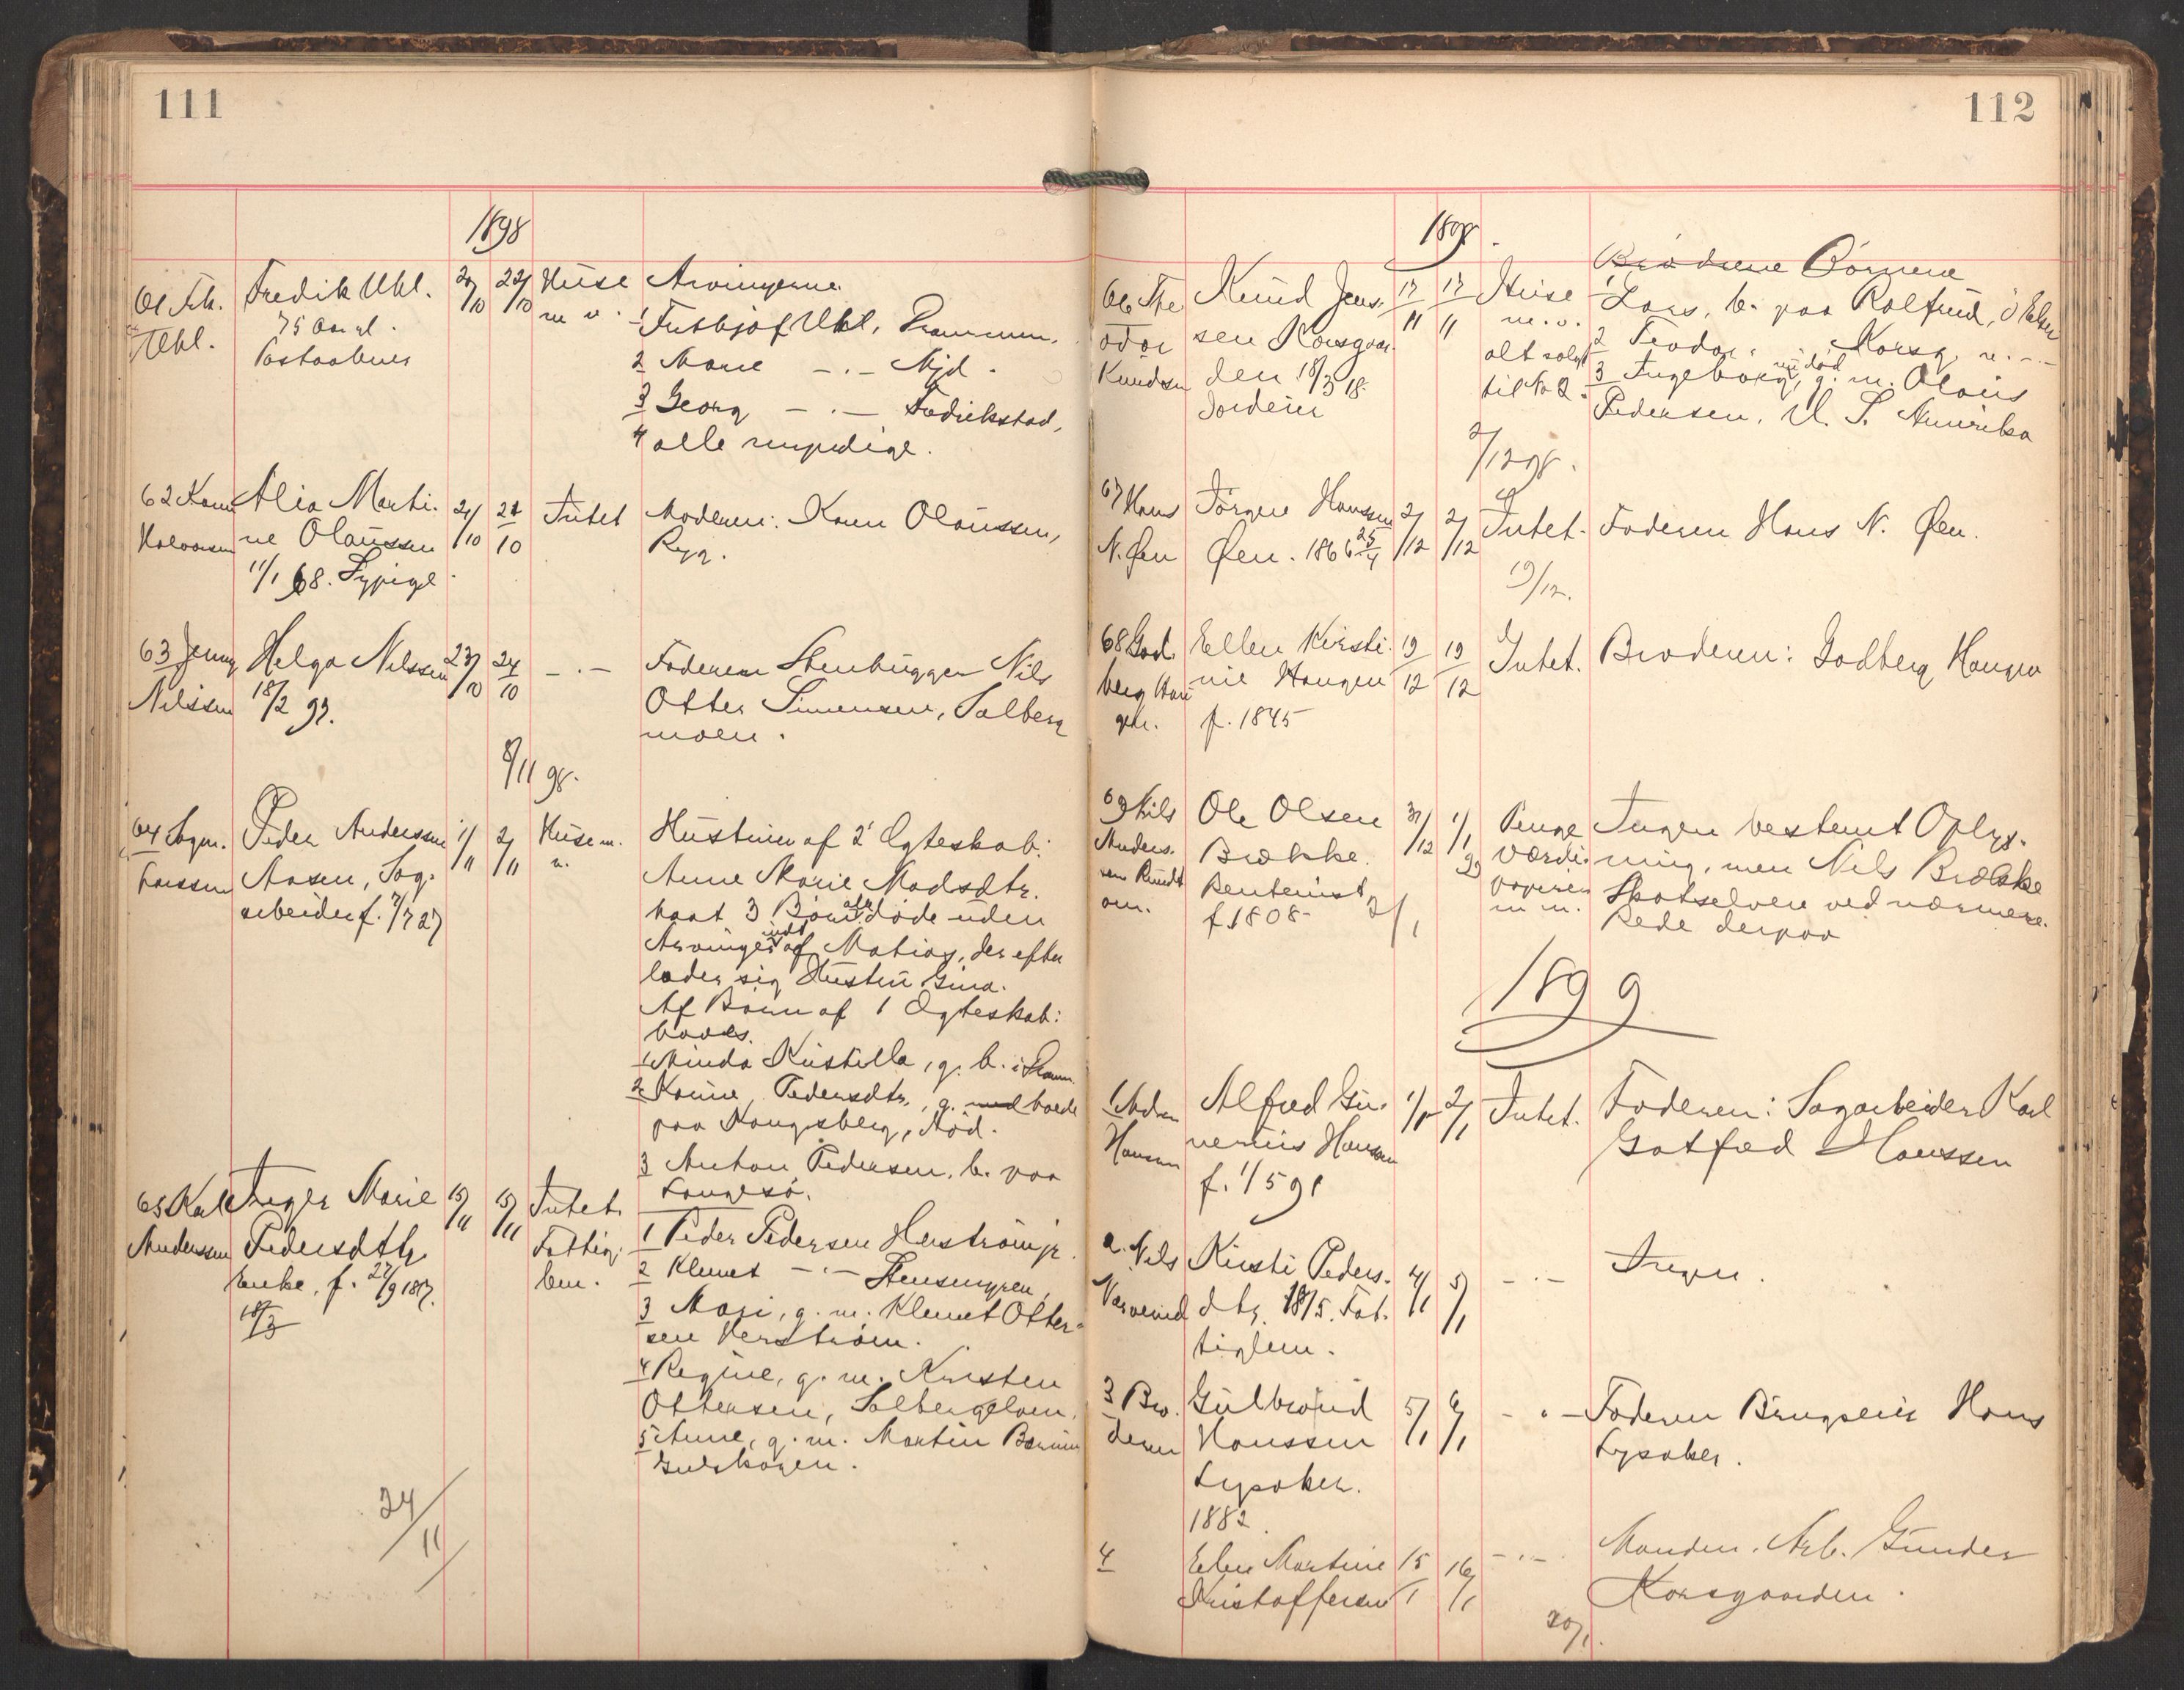 111
1898
61 Frh.
Uhl.
Fredik Uhl.
75 Aar gl.
Postaabner
20/10
22/10
Huse
m v.
Arvingerne
1 Frithjof Uhl, Drammen.
2 Marie -.- Mjd.
3 Georg -.- Fredrikstad,
4 alle myndige.
62 Karen
Halvorsen
Alia Marti-
ne Olaussen
11/1 68. Sypige
21/10
21/10
Intet
Moderen: Karen Olaussen,
Ryg.
63 Jenny
Nilssen
Helga Nilssen
18/2 97.
23/10
24/10
-.-
Faderen Stenhugger Nils
Otter Simensen, Solberg
moen.
8/11 98.
64 Sogn.
Larssen
Peder Anderssen
Aasen, Sag-
arbeider f. 7/7 27
1/11
2/11
Huse m.
v.
Hustruen af 2 Ægteskab:
Anne Marie Madsdtr.
havt 3 Børn alle døde uden
Arvinger indt. af Matias, der efter
lader sig Hustru Gina.
Af Børn af 1 Ægteskab:
haves.
1 Minda Kristilla, g. b. i Dram.
2 Karine Pedersdtr., g. med boede
paa Kongsberg, død.
3 Anton Pedersen. b. paa
Langesø.
65 Karl
Anderssen
Inger Marie
Pedersdtr
Enke, f. 27/9 1817.
18/3
15/11
15/11
Intet.
Fattig-
lem.
1 Peder Pedersen Herstrøm jr.
2 Klemet -.- Stensmyren,
3 Mari, g. m. Klemet Otter-
sen Herstrøm.
4 Regine, g. m. Kristen
Ottersen, Solbergelven,
5 Anne, g. m. Martin
Gulskogen.
24/11
112
1898.
66 The
odor
Knudsen
Knud Jens-
sen Korsgaar-
den 18/3 18.
Jordeier
17/11
17/11
Huse
m. v.
alt solgt
til No 2.
Brødrene Børnene
1 Lars, b. paa Kolfrud, Ø Eker
2 Teodor, Korsg. n. -.-
3 Ingeborg, nu død g. m. Olaus
Pedersen, U. S. Amerika
2/12 98.
67 Hans
N. Øen
Jørgen Hanssen
Øen. 1866 25/4
2/12
2/12
Intet.
Faderen Hans N. Øen.
19/12.
68 God
berg Hau
gen.
Ellen Kirsti-
nie Haugen
f. 1845
19/12
19/12
Intet.
Broderen: Godberg Haugen
69 Nils
Anders-
sen Rundt
om.
Ole Olsen
Brække.
Rentenist
f. 1808-
2/1
31/12
1/1
99
Penge
værdi-
papirer
m m.
Ingen bestemt Oplys-
ning, men Nils Brække
Skotselven ved nærmere.
Rede derpaa
1899
1 Andrea
Hansen
Alfred Gu-
nerius Hansen
f. 1/5 91
1/1
2/1
Intet.
Faderen: Sagarbeider Karl
Gotfred Hanssen
2. Nils
Kirsti Peders-
dtr. 18/5. Fat-
tiglem.
4/1
5/1
-.-
Ingen.
3 Bro-
deren
Gulbrand
Hanssen
Lysaker.
1882.
5/1
6/1
-.-
Faderen Brugseier Hans
Lysaker.
4
Elen Martine
Kristoffersen
15/1
16/1
-.-
Manden. Arb. Gunder
Korsgaarden.
20/1.